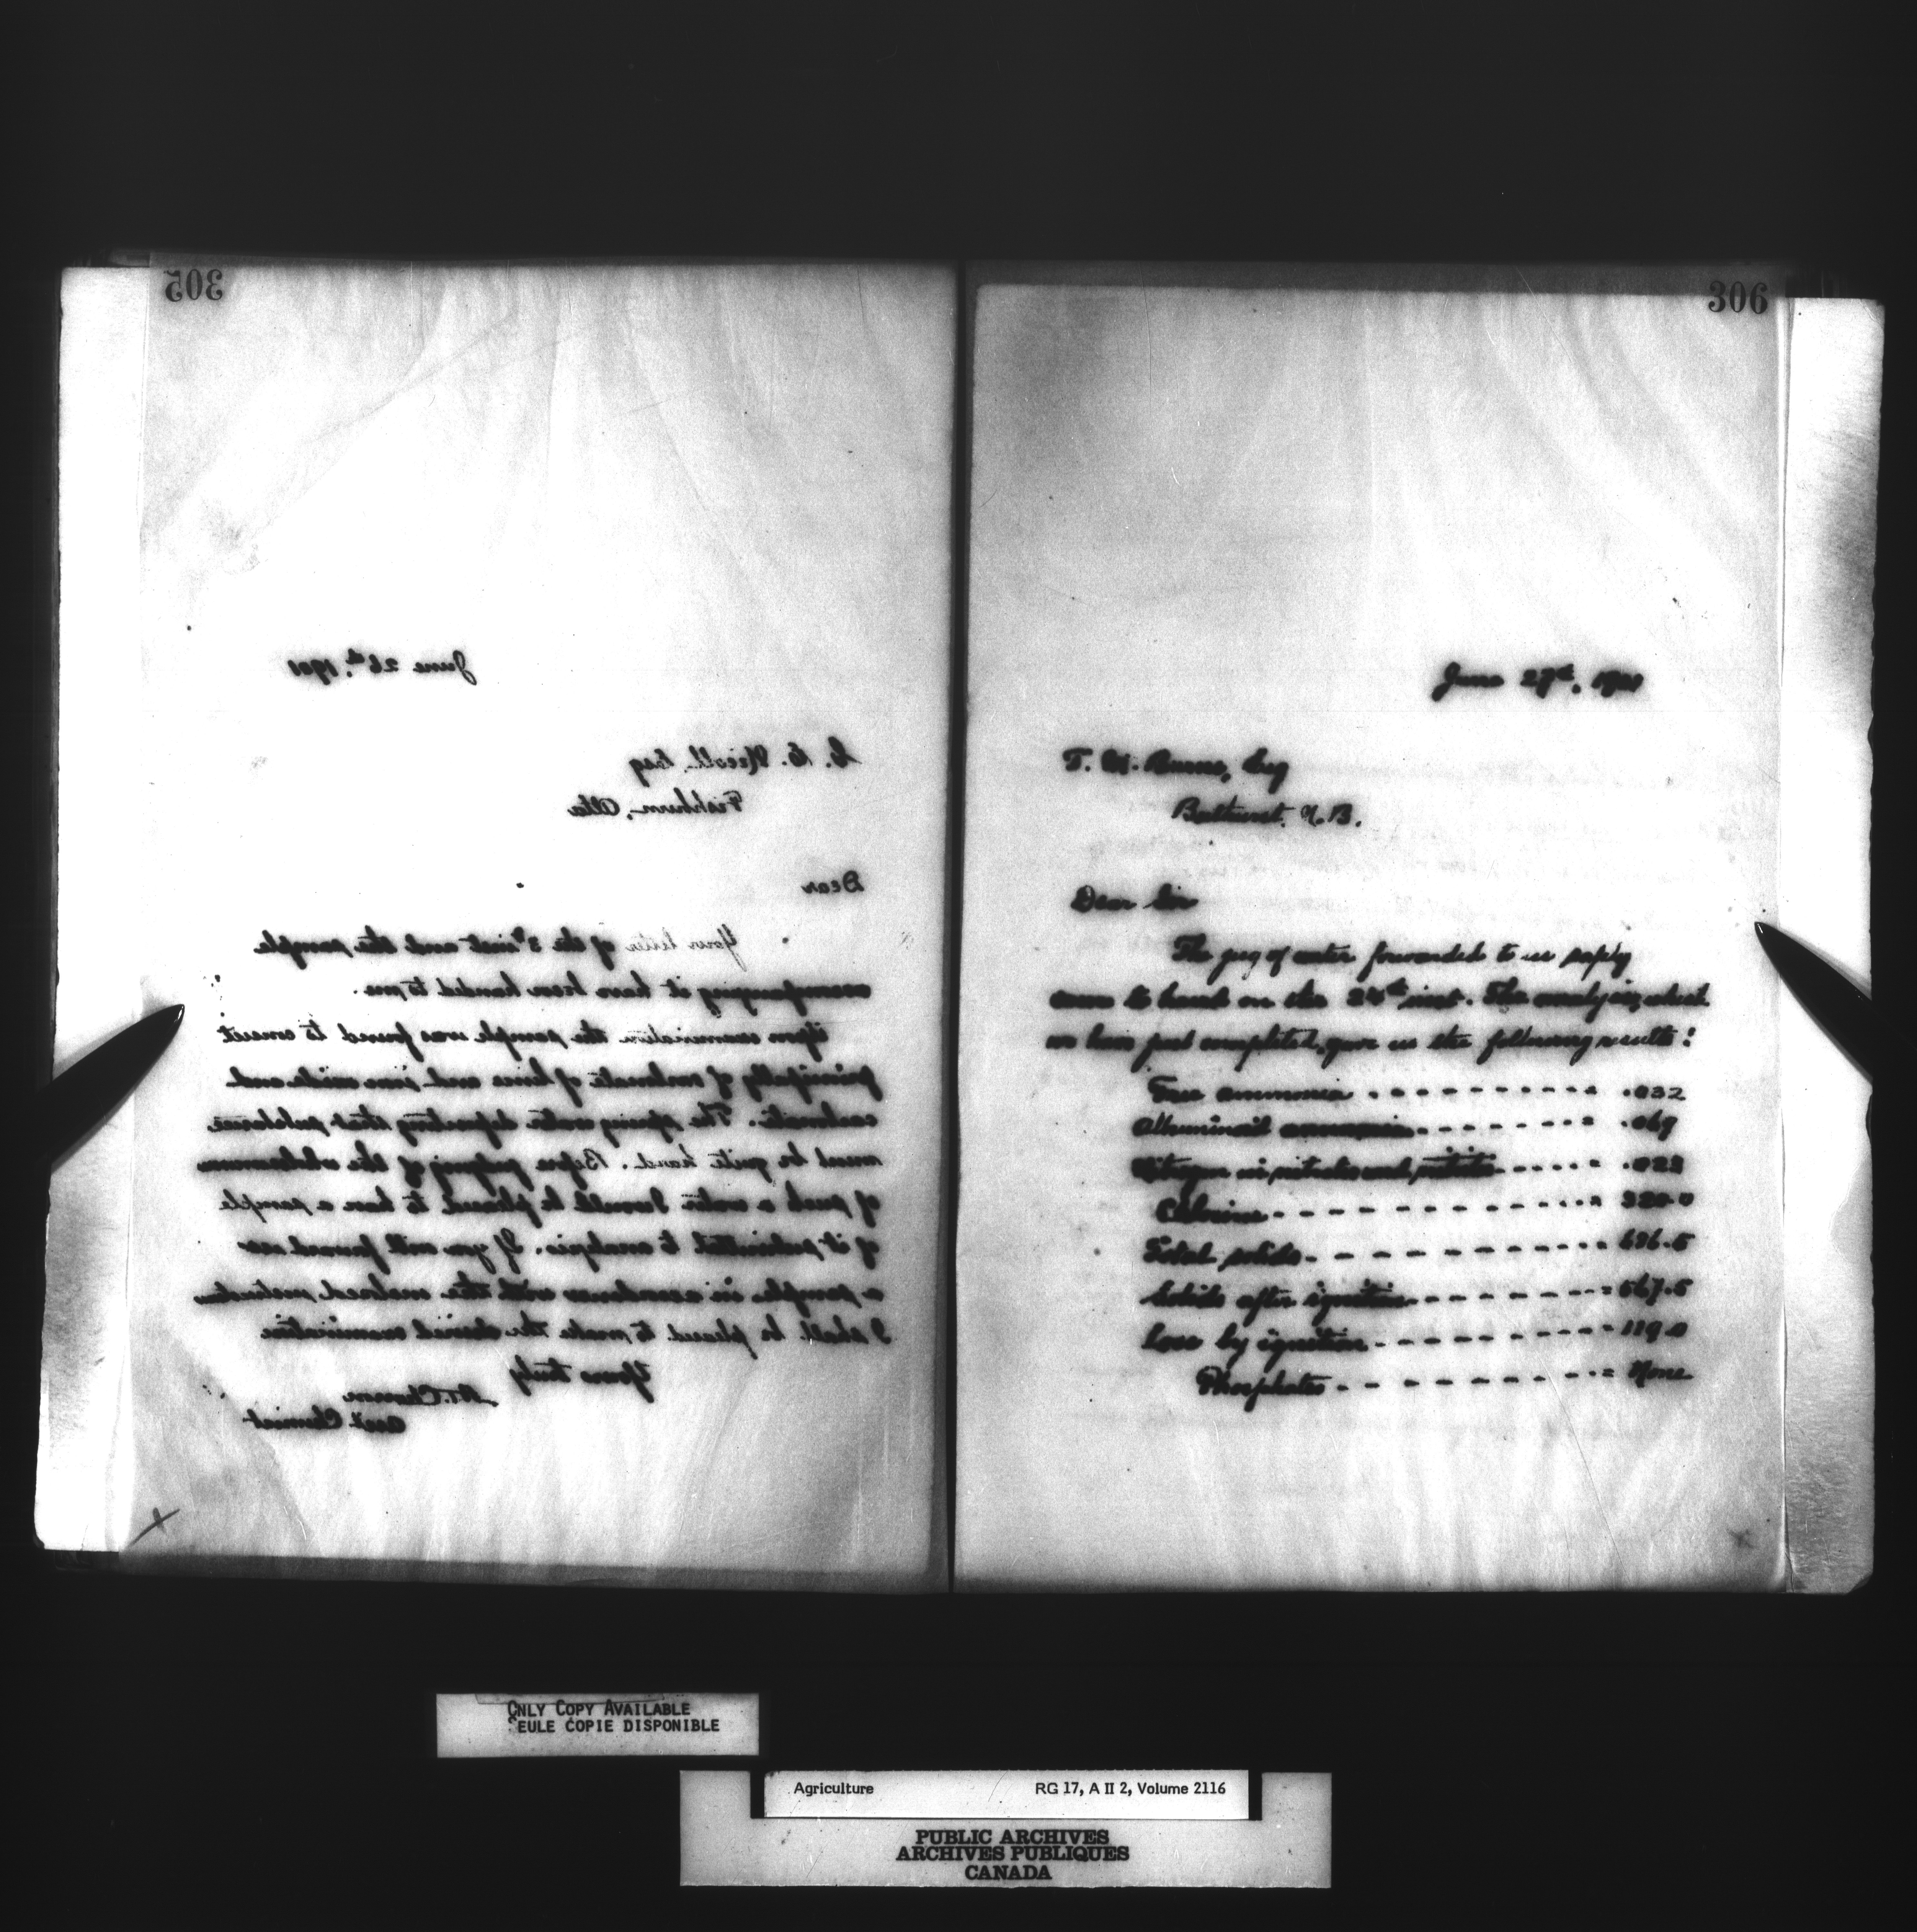 305
June 26th, 1901
Nicoll, Esq
Fishburn, Alta
Dear
Your letter of the 5th inst and the sample
accompanying it have been handed to me.
Upon examination the sample was found to consist
principally of carbonate of lime and iron oxide and
carbonate. The spring water depositing that substance
must be quite hard. Before judging of the wholesomeness
of such a water I would be pleased to have a sample
of it submitted to analysis. If you will forward me
a sample in accordance with the enclosed instructions
I shall be pleased to make the desired examination
Yours truly
Asst. Chemist
306
June 27th, 1901
T. M. Burns, Esq
Bathurst. N.B.
Dear Sir
The jug of water forwarded to us safely
came to hand on the 24th inst. The analysis, which
we have just completed, gave us the following results:
Free ammonia - - - - - - - - - - = .032
Albuminoid ammonia - - - - - - - = .069
Nitrogen in nitrates and nitrites - - - - = .023
Chlorine - - - - - - - - - - - - = 320.0
Total solids - - - - - - - - - - - = 686.5
Solids after ignition - - - - - - - = 567.5
Loss by ignition - - - - - - - - - = 119.0
Phosphates - - - - - - - - - - - = None
ONLY COPY AVAILABLE
SEULE COPIE DISPONIBLE
Agriculture RG 17, A II 2, Volume 2116
PUBLIC ARCHIVES
ARCHIVES PUBLIQUES
CANADA